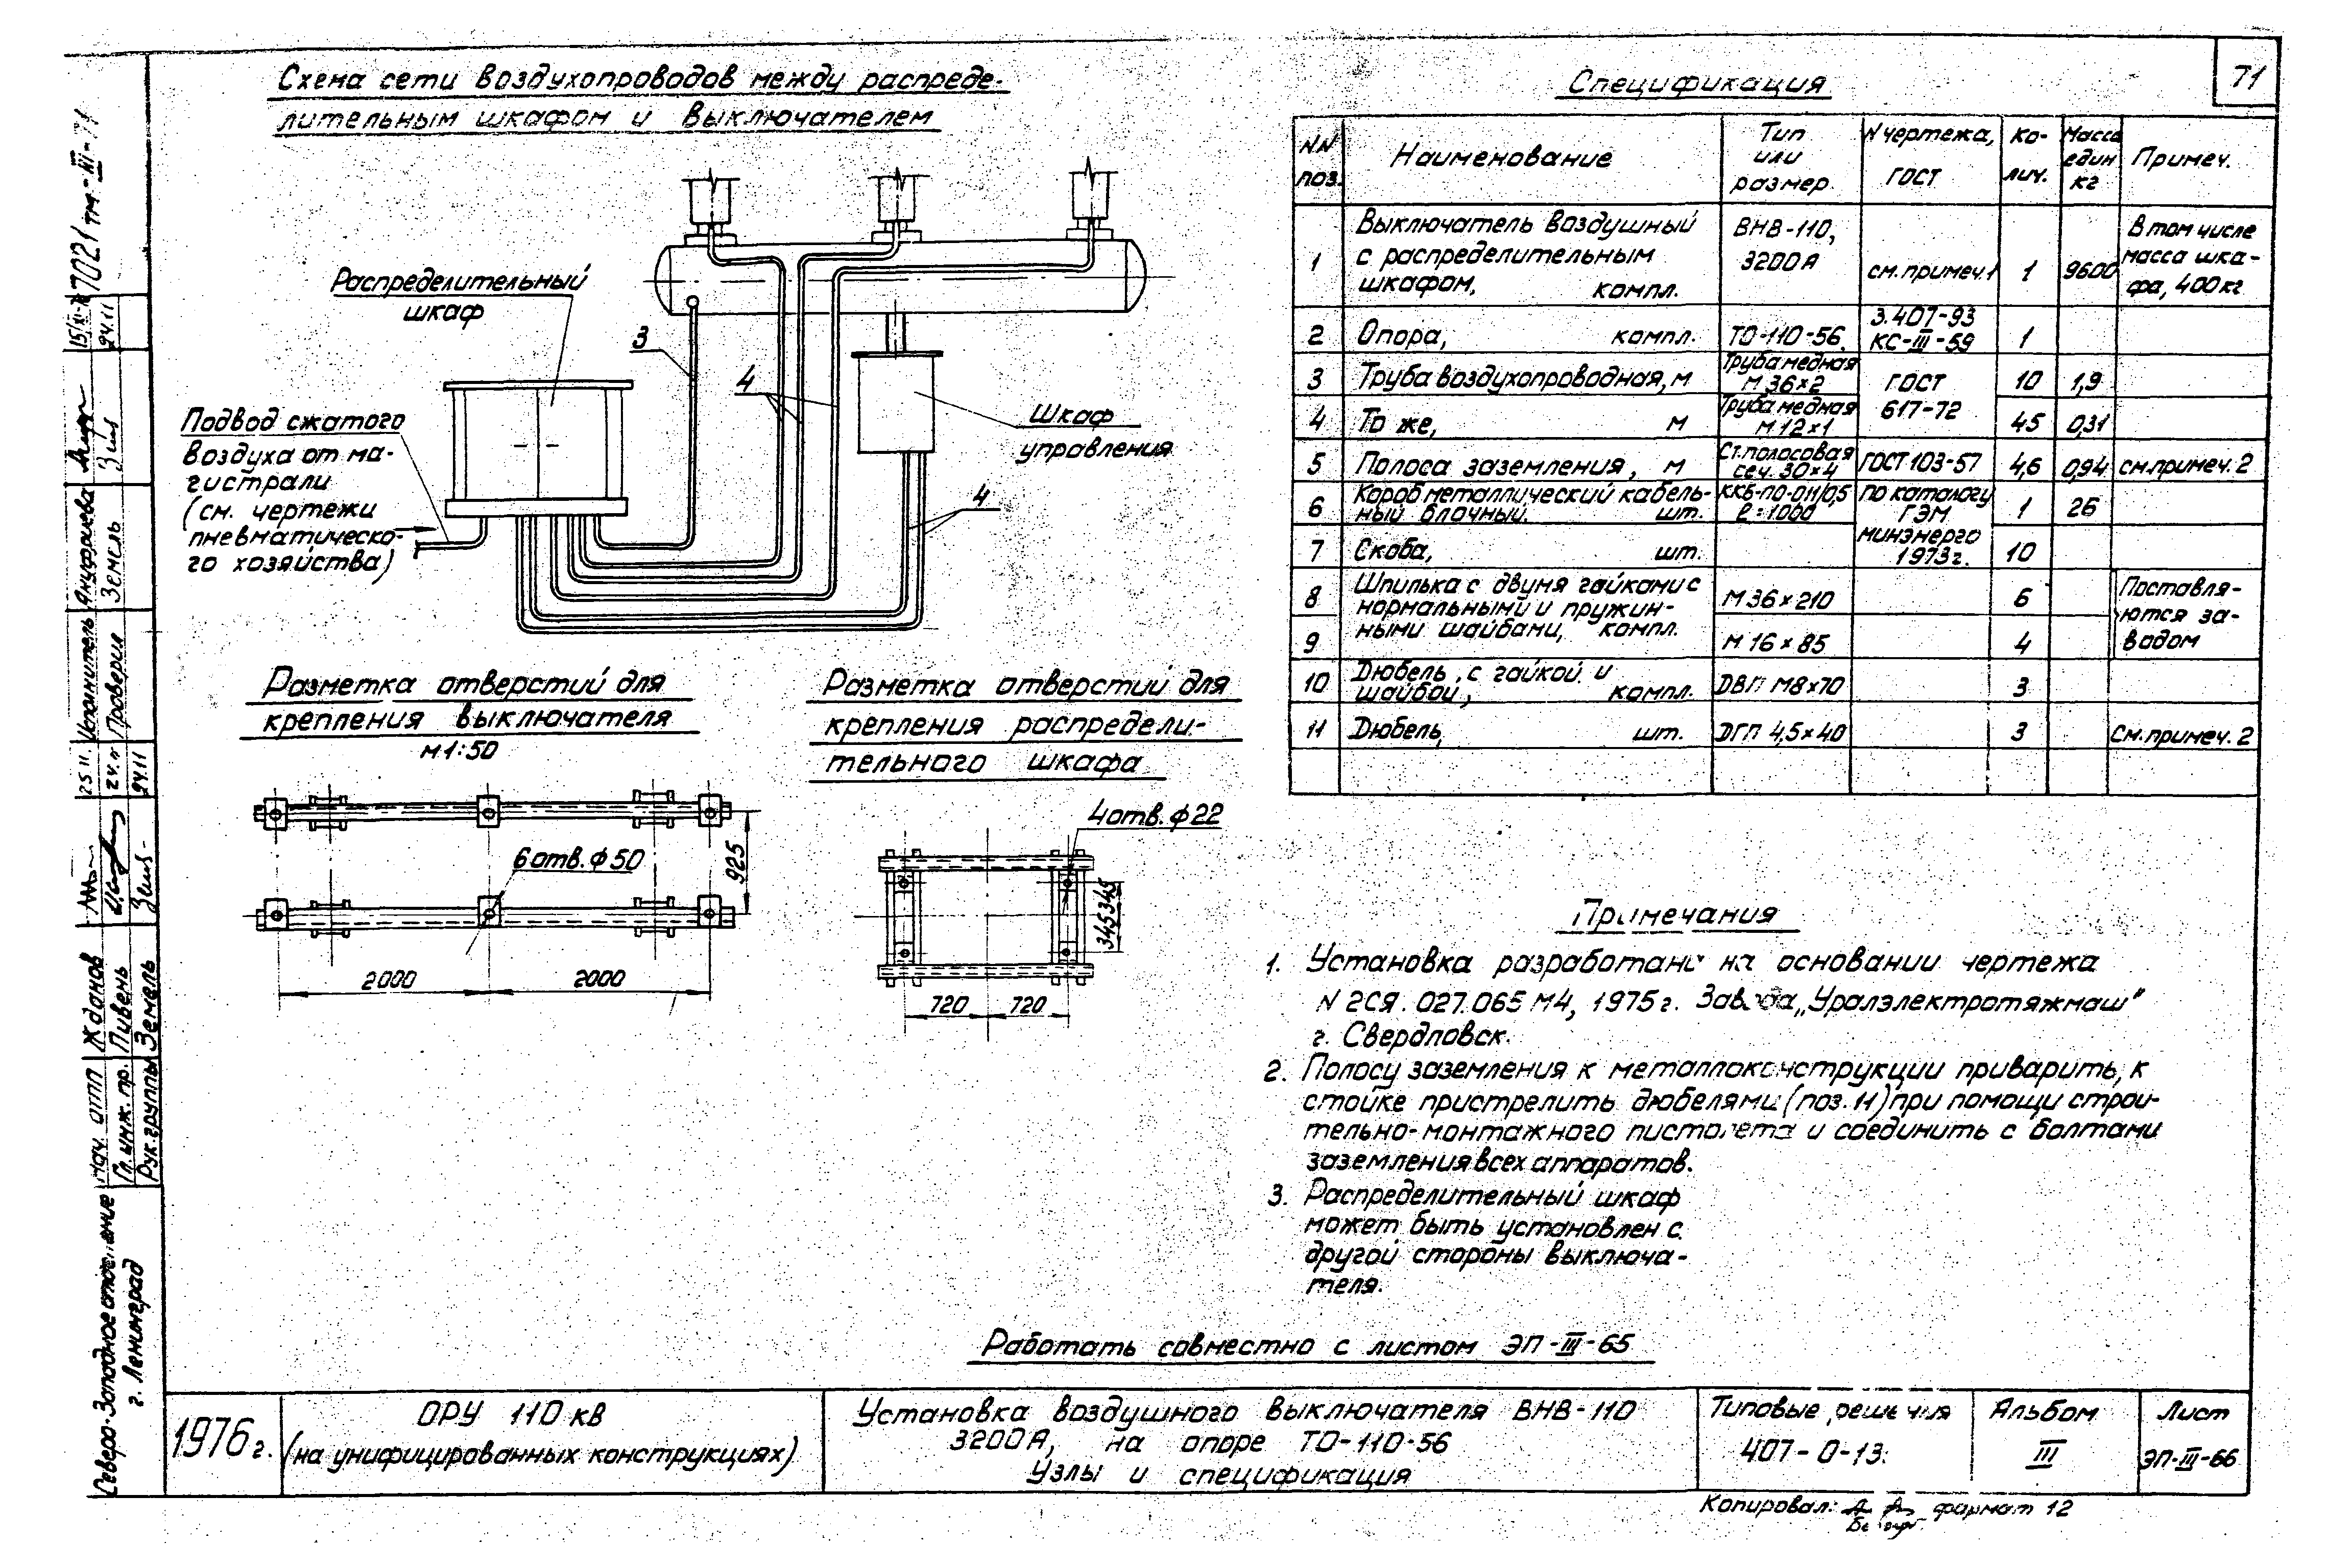 71
Схема сети воздухопроводов между распреде-
лительным шкафом и выключателем
Распределительный
шкаф
3
4
Подвод сжатого
воздуха от ма-
гистрали
(см. чертежи
пневматическо-
го хозяйства)
Шкаф
управления
4
Разметка отверстий для
крепления выключателя
М 1:50
6 отв. ф 50
925
2000 2000
Разметка отверстий для
крепления распредели-
тельного шкафа
4 отв. ф 22
345 345
720 720
Спецификация
NN поз. Наименование Тип или размер. N чертежа, ГОСТ Ко-лич. Масса един кг Примеч.
1 Выключатель воздушный с распределительным шкафом, компл. ВНВ-110, 3200А см. примеч.1 1 9600 В том числе масса шка-фа, 400кг
2 Опора, компл. ТО-110-56. 3.407-93 КС-III-59 1
3 Труба воздухопроводная, м Труба медная М 36×2 ГОСТ 617-72 10 1,9
4 То же, м Труба медная М 12×1 45 0,31
5 Полоса заземления, м Ст. полосовая сеч. 30×4 ГОСТ 103-57 4,6 0,94 см. примеч. 2
6 Короб металлический кабель-ный блочный. шт. ККБ-ПО-0,11/0,5 ℓ=1000 По каталогу ГЭМ минэнерго 1973г. 1 26
7 Скоба, шт. 10
8 Шпилька с двумя гайками с нормальными и пружин-ными шайбами, компл. М 36×210 6 Поставля-ются за-водом
9 М 16×85 4
10 Дюбель, с гайкой и шайбой, компл. ДВП М8×70 3
11 Дюбель, шт. ДГП 4,5×40 3 См. примеч. 2
Примечания
1. Установка разработана на основании чертежа
N 2СЯ.027.065 М4, 1975г. Завода „Уралэлектротяжмаш"
г. Свердловск.
2. Полосу заземления к металлоконструкции приварить, к
стойке пристрелить дюбелями (поз. 11) при помощи строи-
тельно-монтажного пистолета и соединить с болтами
заземления всех аппаратов.
3. Распределительный шкаф
может быть установлен с
другой стороны выключа-
теля.
Работать совместно с листом ЭП-III-65
1976г.
ОРУ 110 кВ
(на унифицированных конструкциях)
Установка воздушного выключателя ВНВ-110
3200А, на опоре ТО-110-56
Узлы и спецификация
Типовые решения
407-0-13.
Альбом
III
Лист
ЭП-III-66
Копировал:
формат 12
7021тм-III-71
Северо-Западное отделение
г. Ленинград
Нач. ОТП Жданов 25.11.
Гл. инж. пр. Пивень
Рук. группы Земель 24.11
Исполнитель Ануфриева
Проверил Земель 24.11